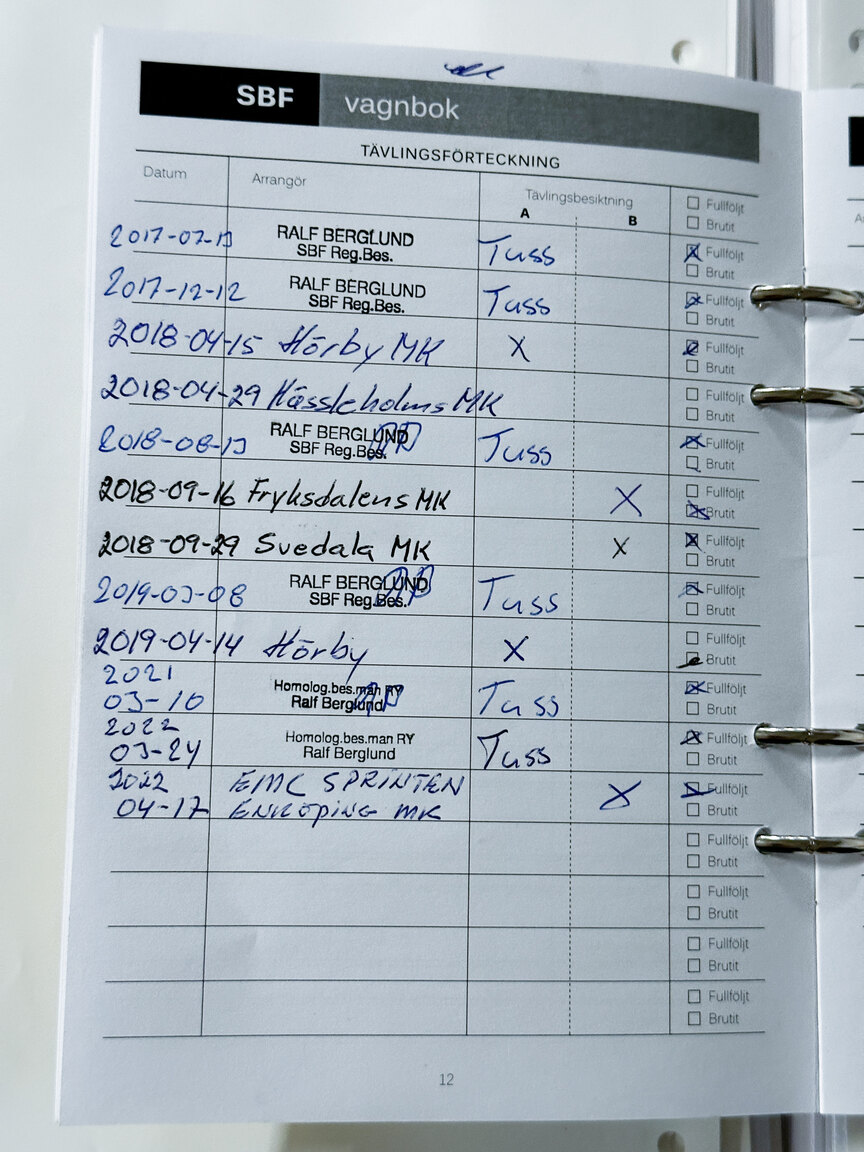 SBF vagnbok
TÄVLINGSFÖRTECKNING
Datum Arrangör Tävlingsbesiktning
A B
Fullföljt
Brutit
2017-07-13 RALF BERGLUND Tuss Fullföljt
SBF Reg.Bes. Brutit
2017-12-12 RALF BERGLUND Tuss Fullföljt
SBF Reg.Bes. Brutit
2018-04-15 Hörby MK X Fullföljt
Brutit
2018-04-29 Hässleholms MK Fullföljt
Brutit
2018-08-13 RALF BERGLUND Tuss Fullföljt
SBF Reg.Bes. Brutit
2018-09-16 Fryksdalens MK X Fullföljt
Brutit
2018-09-29 Svedala MK X Fullföljt
Brutit
2019-03-08 RALF BERGLUND Tuss Fullföljt
SBF Reg.Bes. Brutit
2019-04-14 Hörby X Fullföljt
Brutit
2021 Homolog.bes.man RY Tuss Fullföljt
03-10 Ralf Berglund Brutit
2022 Homolog.bes.man RY Tuss Fullföljt
03-24 Ralf Berglund Brutit
2022 EMC SPRINTEN X Fullföljt
04-17 ENKÖPING MK Brutit
Fullföljt
Brutit
Fullföljt
Brutit
Fullföljt
Brutit
Fullföljt
Brutit
12